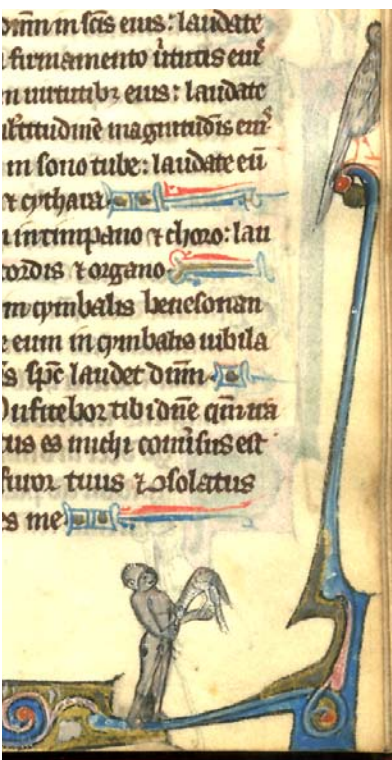 dn̄m in sc̄is eius: laudate
firmamento ūtutis eiꝰ
n uirtutibꝫ eius: laudate
ltitudinē magnitudīs eiꝰ
in sono tube: laudate eū
⁊ cythara
in timpano ⁊ choro: lau
cordis ⁊ organo
m cymbalis benesonan
e eum in cymbalis iubila
s sp̄c laudet dn̄m
onfitebor tibi dn̄e qm̄ ira
tus es michi conūsus est
furor tuus ⁊ ↄsolatus
es me